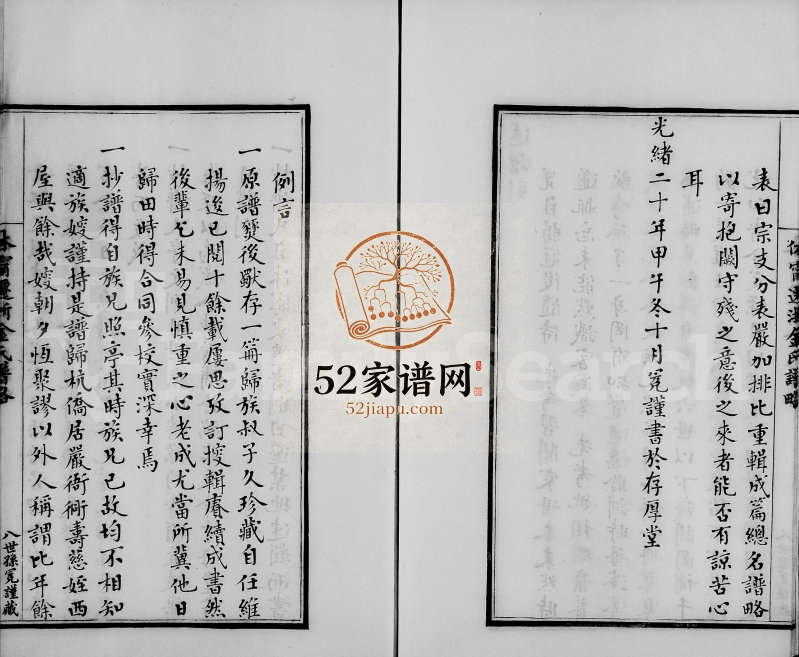 表曰宗支分表嚴加排比重輯成篇總名譜略
以寄抱闕守殘之意後之來者能否有諒苦心
耳
光緒二十年甲午冬十月冕謹書於存厚堂
例言
一原譜燹後獸存一篇歸族叔子久珍藏自任維
揚後已閱十餘載屢思攷訂搜輯賡續成書然
後輩乞未易見慎重之心老成尤當所冀他日
歸田時得合同參校實深幸焉
一抄譜得自族兄照亭其時族兄已故均不相知
適族嫂謹持是譜歸杭僑居嚴衙衕壽慈姪西
屋與餘哉嫂朝夕恆聚謬以外人稱謂比年餘
八世孫冕謹藏
52家谱网
52jiapu.com